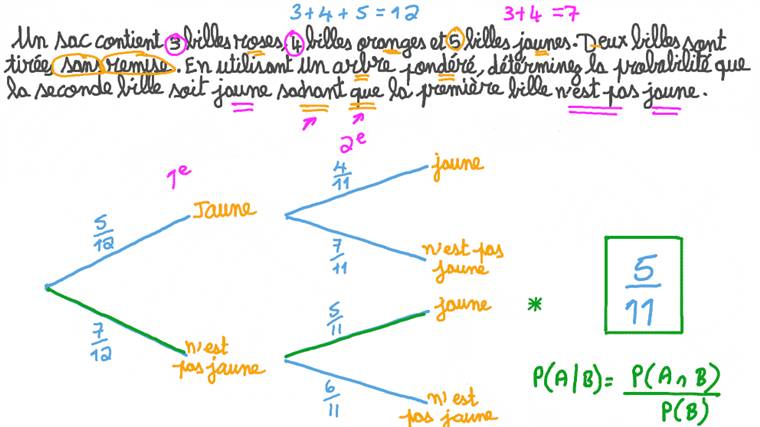 3+4+5=12 3+4=7
Un sac contient 3 billes roses, 4 billes oranges et 5 billes jaunes. Deux billes sont
tirées sans remise. En utilisant un arbre pondéré, déterminez la probabilité que
la seconde bille soit jaune sachant que la première bille n'est pas jaune.
1e 2e
5/12 Jaune
4/11 jaune
7/11 n'est pas
jaune
7/12 n'est
pas jaune
5/11 jaune *
6/11 n'est
pas jaune
5/11
P(A|B) = P(A∩B)/P(B)